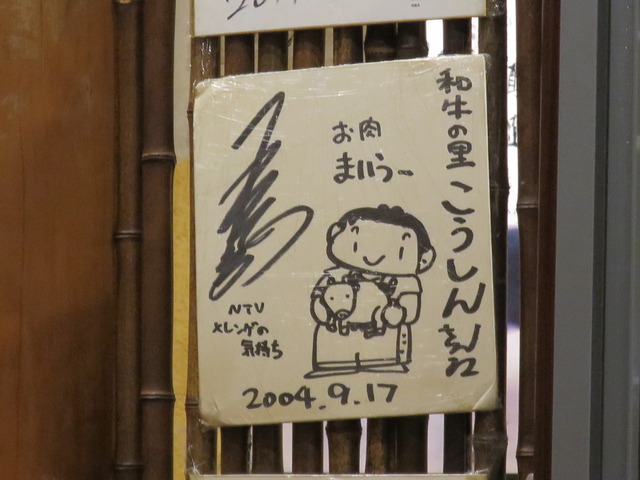 和牛の里 こうしんさん江
お肉
まいうー
NTV
メレンゲの
気持ち
2004.9.17